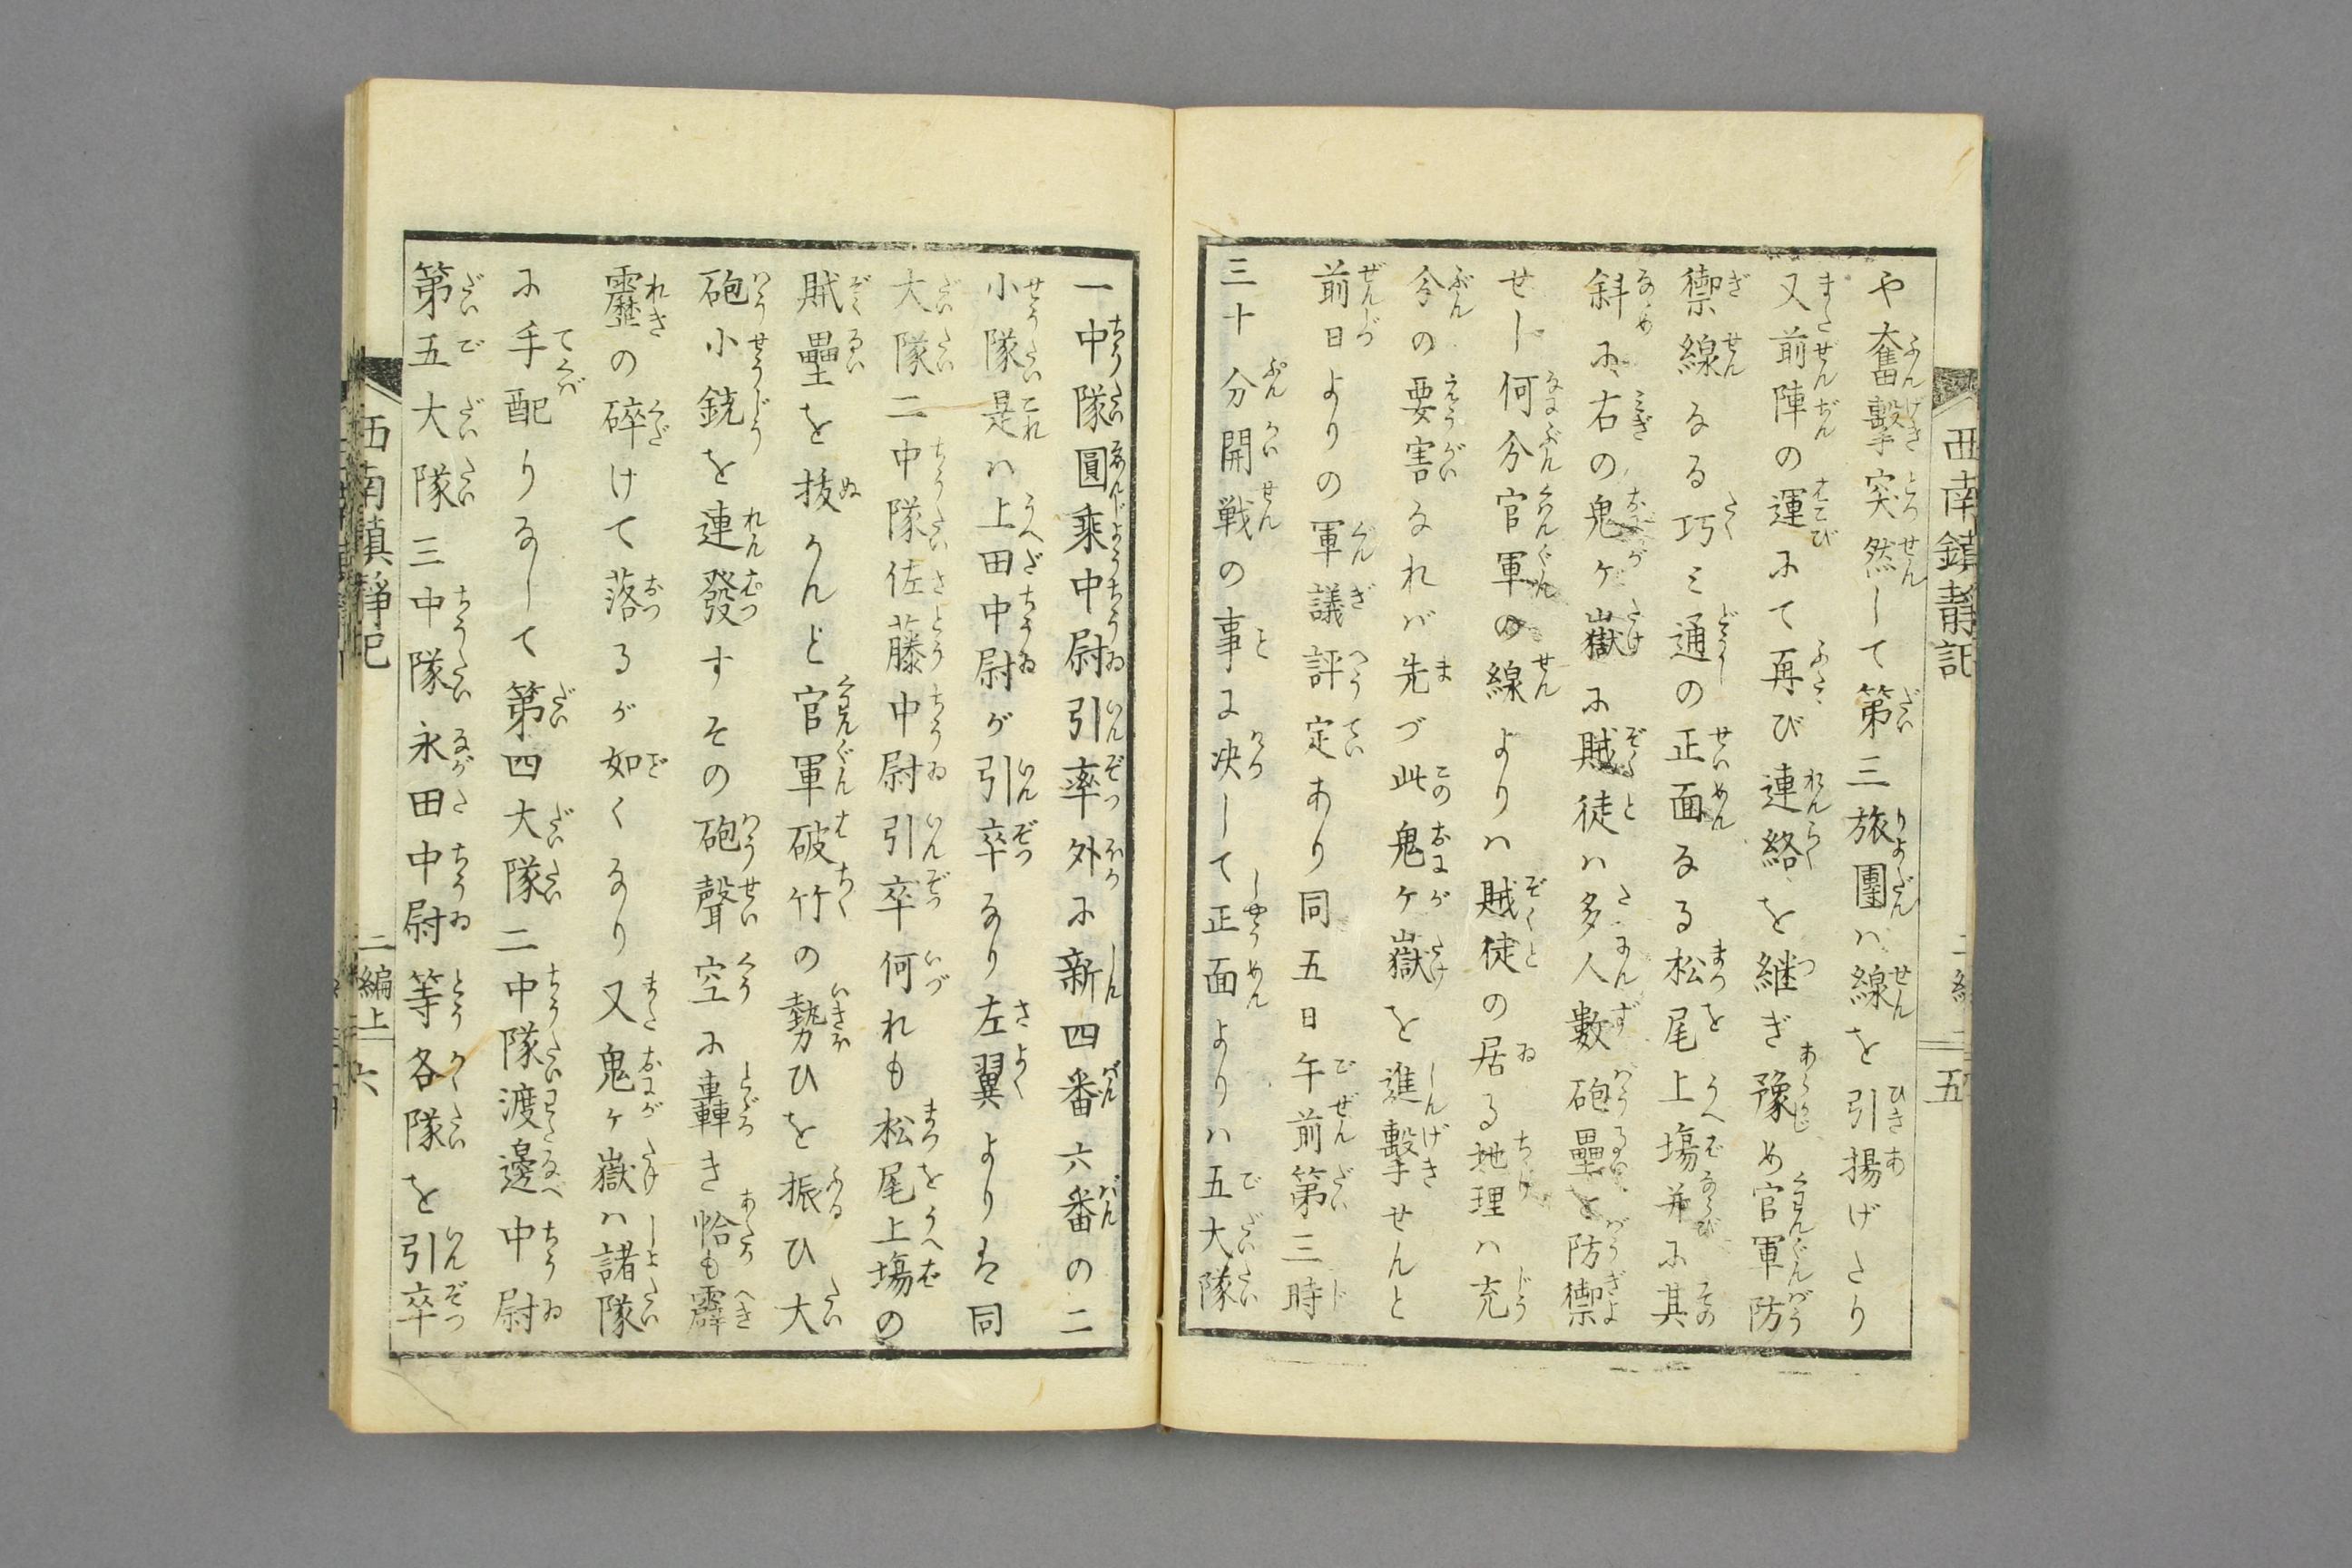 西南鎮靜記
五
や奮擊突然して第三旅團ハ線を引揚げたり
又前陣の運にて再び連絡を継ぎ豫め官軍防
禦線なる巧ミ通の正面なる松尾上塲并に其
斜に右の鬼ヶ嶽に賊徒ハ多人數砲壘を防禦
せし何分官軍の線よりハ賊徒の居る地理ハ充
分の要害なれバ先づ此鬼ヶ嶽を進擊せんと
前日よりの軍議評定あり同五日午前第三時
三十分開戦の事に决して正面よりハ五大隊
一中隊圓乘中尉引率外に新四番六番の二
小隊是ハ上田中尉が引卒なり左翼よりは同
大隊二中隊佐藤中尉引卒何れも松尾上塲の
賊壘を抜かんと官軍破竹の勢ひを振ひ大
砲小銃を連發すその砲聲空に轟き恰も霹
靂の碎けて落るが如くなり又鬼ヶ嶽ハ諸隊
に手配りなして第四大隊二中隊渡邊中尉
第五大隊三中隊永田中尉等各隊を引卒
西南鎮靜記
二編上
六